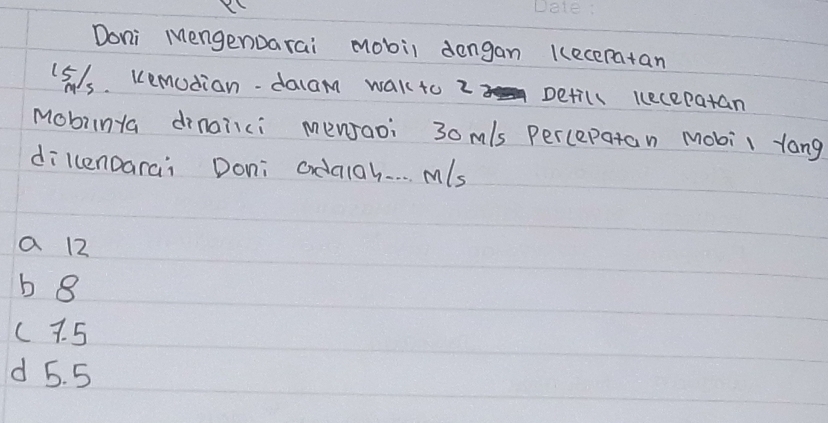 Date :
Doni Mengendarai mobil dengan kecepatan
15 m/s. Kemudian - dalam waktu 2 Detik kecepatan
Mobilnya dinaiki menjadi 30 m/s Percepatan Mobil Yang
dikendarai Doni adalah.... m/s
a 12
b 8
c 7.5
d 5.5